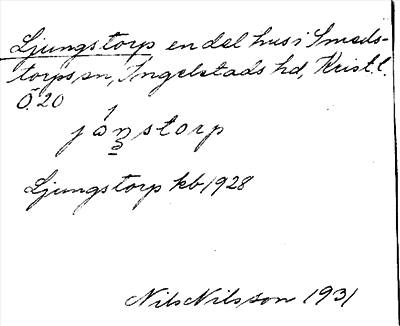 Ljungstorp en del hus i Smeds-
torps sn, Ingelstads hd, Krist. l.
Ö. 20
jón̠storp
Ljungstorp kb 1928
Nils Nilsson 1931